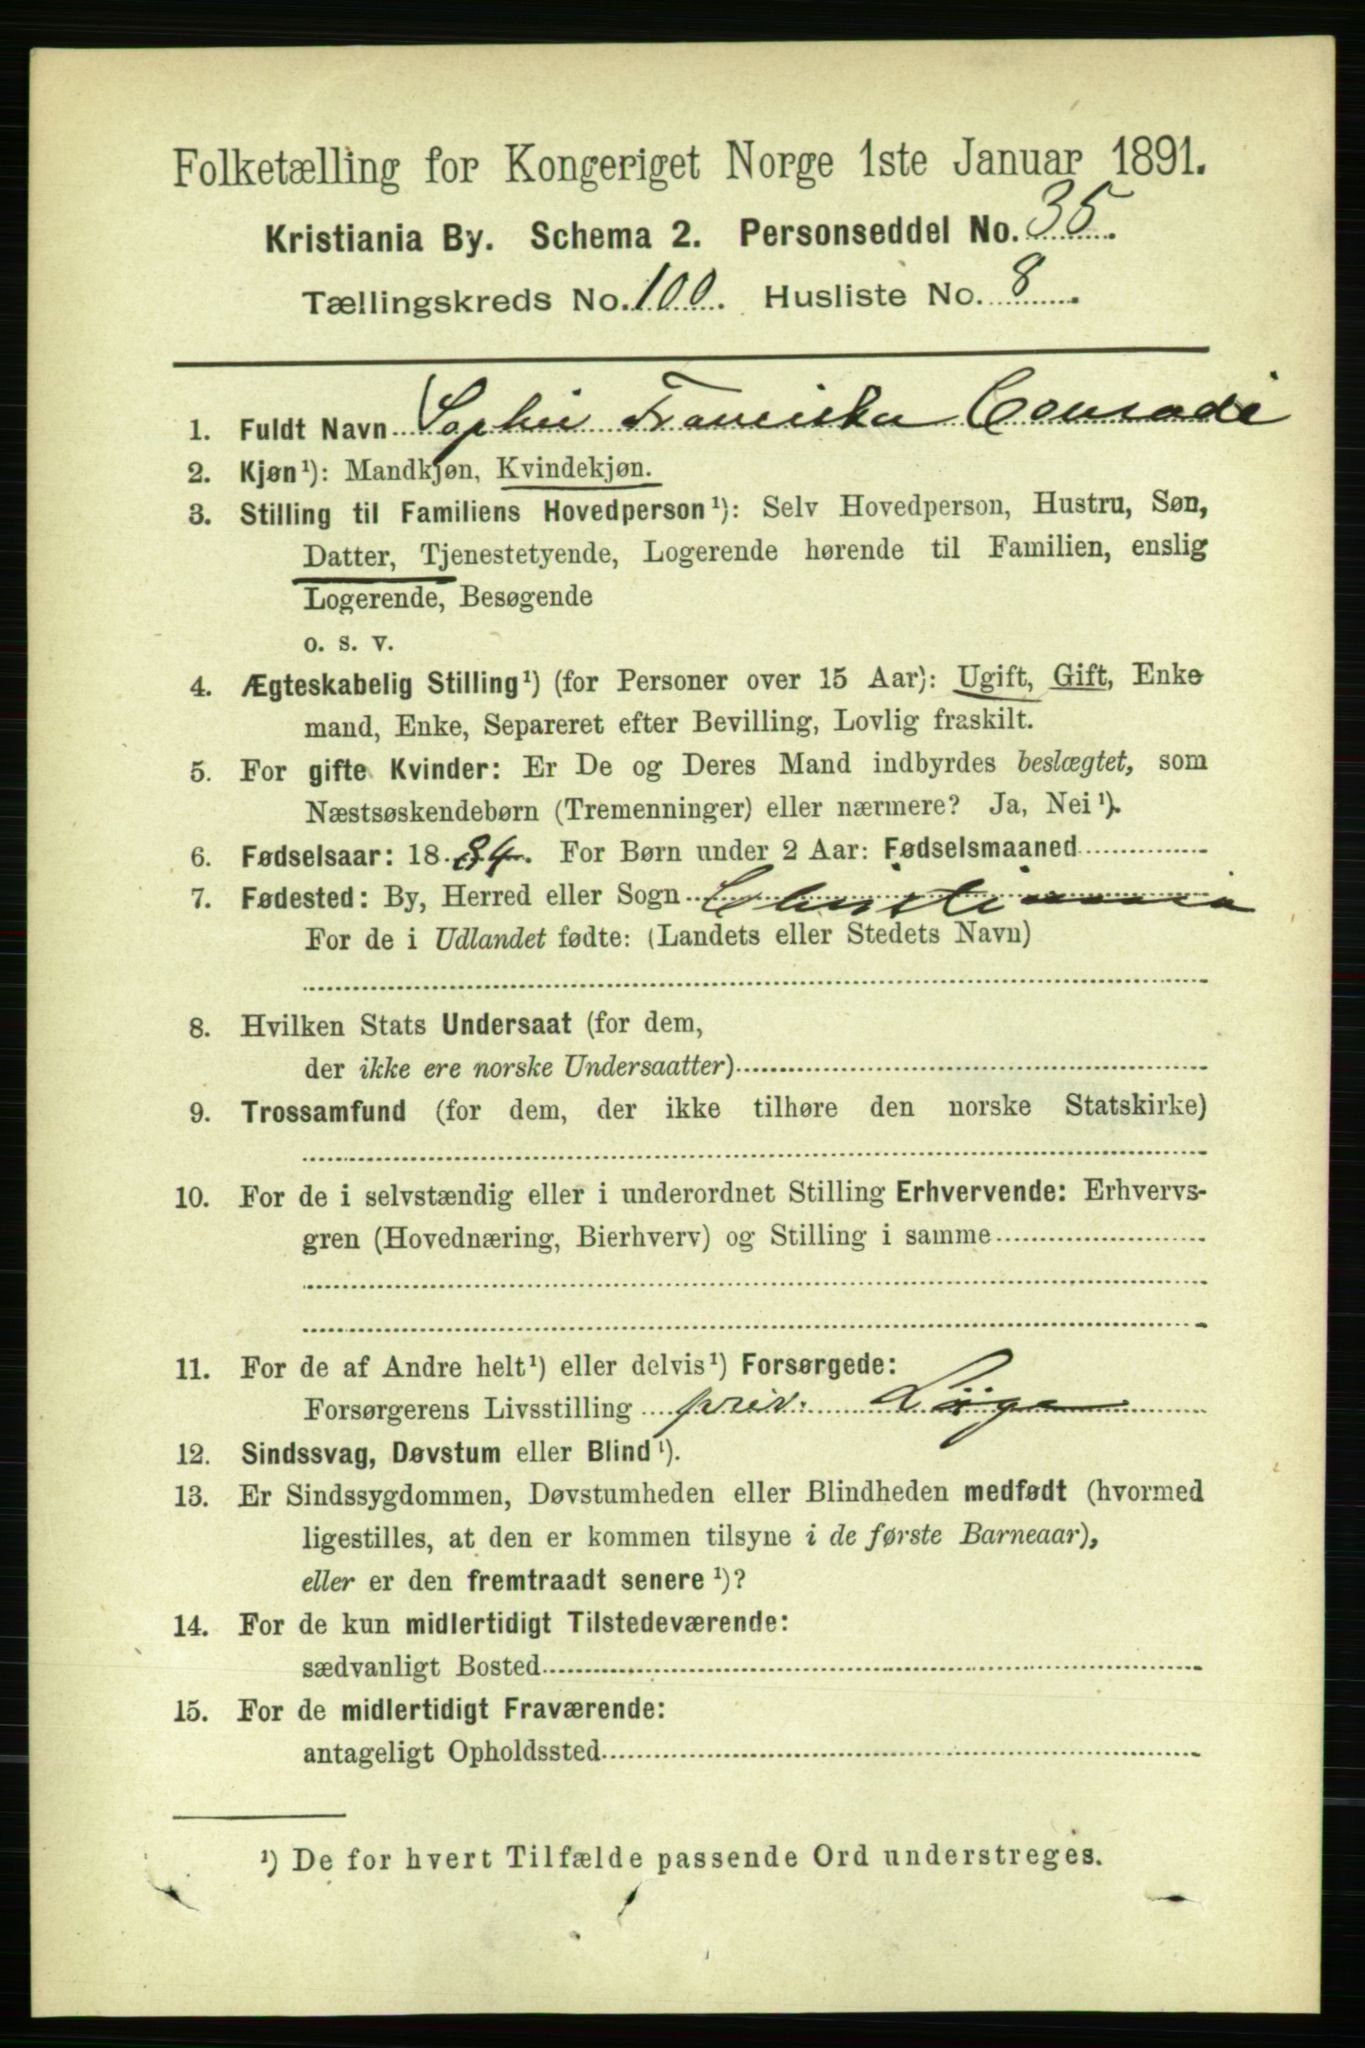 Folketælling for Kongeriget Norge 1ste Januar 1891.
Kristiania By. Schema 2. Personseddel No. 35.
Tællingskreds No. 100. Husliste No. 8.
1. Fuldt Navn Sophie Franciska Conradi
2. Kjøn¹): Mandkjøn, Kvindekjøn.
3. Stilling til Familiens Hovedperson¹): Selv Hovedperson, Hustru, Søn,
Datter, Tjenestetyende, Logerende hørende til Familien, enslig
Logerende, Besøgende
o. s. v.
4. Ægteskabelig Stilling¹) (for Personer over 15 Aar): Ugift, Gift, Enke
mand, Enke, Separeret efter Bevilling, Lovlig fraskilt.
5. For gifte Kvinder: Er De og Deres Mand indbyrdes beslægtet, som
Næstsøskendebørn (Tremenninger) eller nærmere? Ja, Nei¹).
6. Fødselsaar: 18 84. For Børn under 2 Aar: Fødselsmaaned
7. Fødested: By, Herred eller Sogn Christiania
For de i Udlandet fødte: (Landets eller Stedets Navn)
8. Hvilken Stats Undersaat (for dem,
der ikke ere norske Undersaatter)
9. Trossamfund (for dem, der ikke tilhøre den norske Statskirke)
10. For de i selvstændig eller i underordnet Stilling Erhvervende: Erhvervs-
gren (Hovednæring, Bierhverv) og Stilling i samme
11. For de af Andre helt¹) eller delvis¹) Forsørgede:
Forsørgerens Livsstilling priv. Läge
12. Sindssvag, Døvstum eller Blind¹).
13. Er Sindssygdommen, Døvstumheden eller Blindheden medfødt (hvormed
ligestilles, at den er kommen tilsyne i de første Barneaar),
eller er den fremtraadt senere¹)?
14. For de kun midlertidigt Tilstedeværende:
sædvanligt Bosted
15. For de midlertidigt Fraværende:
antageligt Opholdssted
¹) De for hvert Tilfælde passende Ord understreges.